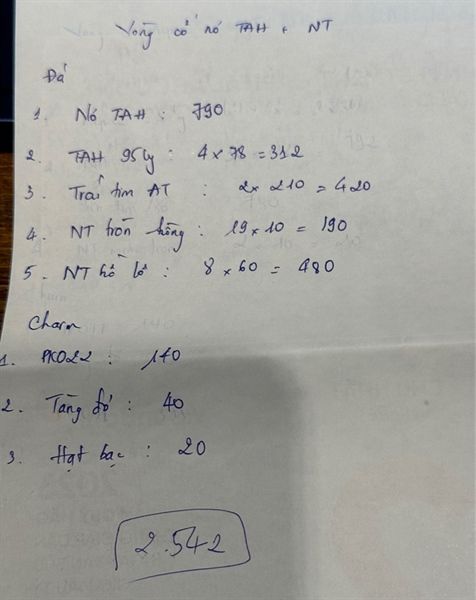 Vòng cổ nó TAH + NT
Đá
1. Nó TAH : 790
2. TAH 95ly : 4 x 78 = 312
3. Trái tim AT : 2 x 210 = 420
4. NT tròn hồng : 19 x 10 = 190
5. NT hồ lô : 8 x 60 = 480
Charm
1. PK022 :
2. đỏ : 40
3. Hạt bạc : 20
2.542